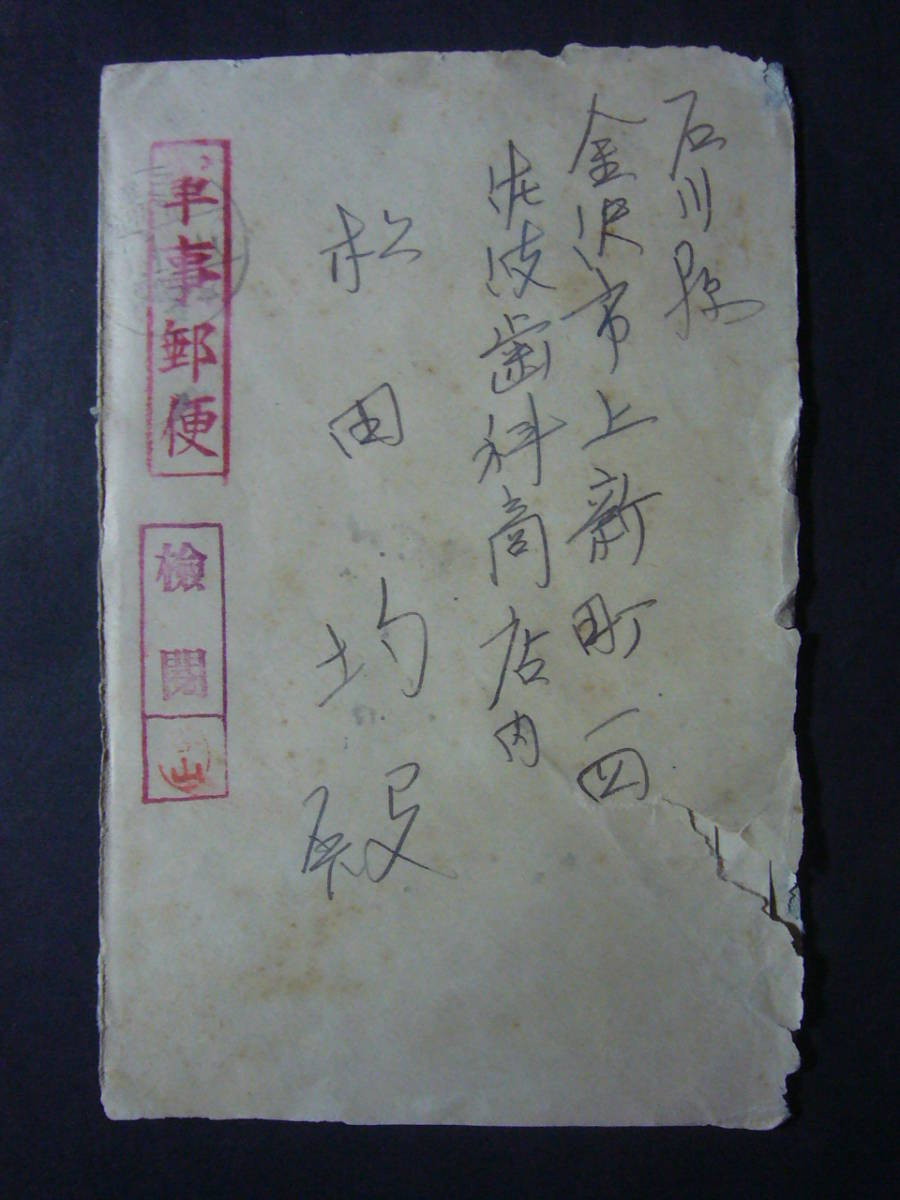 石川縣
金沢市上新町一四
佐波歯科商店内
松田均殿
軍事郵便
檢閲
山